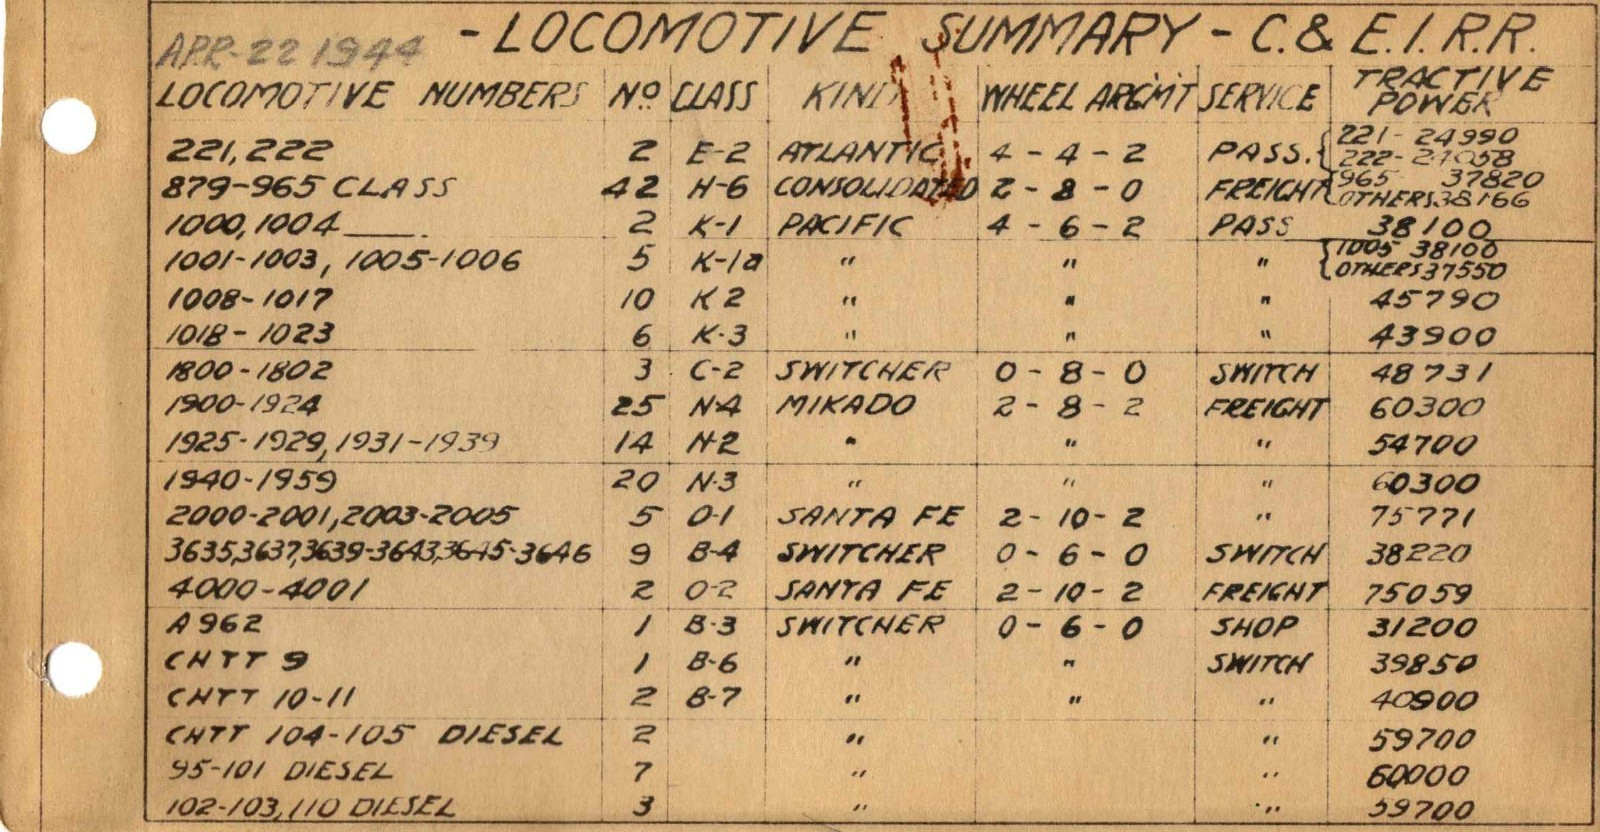 APR-22 1944 - LOCOMOTIVE SUMMARY - C. & E. I. R.R.
LOCOMOTIVE NUMBERS No CLASS KIND WHEEL ARGMT SERVICE TRACTIVE POWER
221, 222 2 E-2 ATLANTIC 4 - 4 - 2 PASS. { 221 - 24990
222 -
879-965 CLASS 42 H-6 CONSOLIDATED 2 - 8 - 0 FREIGHT { 965 37820
OTHERS 38166
1000, 1004 ____. 2 K-1 PACIFIC 4 - 6 - 2 PASS 38100
1001-1003, 1005-1006 5 K-1a " " " { 1005 38100
OTHERS 37550
1008-1017 10 K 2 " " " 45790
1018-1023 6 K-3 " " " 43900
1800-1802 3 C-2 SWITCHER 0 - 8 - 0 SWITCH 48731
1900-1924 25 N-4 MIKADO 2 - 8 - 2 FREIGHT 60300
1925-1929, 1931-1939 14 N-2 " " " 54700
1940-1959 20 N-3 " " " 60300
2000-2001, 2003-2005 5 O-1 SANTA FE 2 - 10 - 2 " 75771
3635, 3637, 3639-3643, 3645-3646 9 B-4 SWITCHER 0 - 6 - 0 SWITCH 38220
4000-4001 2 O-2 SANTA FE 2 - 10 - 2 FREIGHT 75059
A 962 1 B-3 SWITCHER 0 - 6 - 0 SHOP 31200
CHTT 9 1 B-6 " " SWITCH 39850
CHTT 10-11 2 B-7 " " " 40900
CHTT 104-105 DIESEL 2 " " 59700
95-101 DIESEL 7 " " 60000
102-103, 110 DIESEL 3 " " 59700